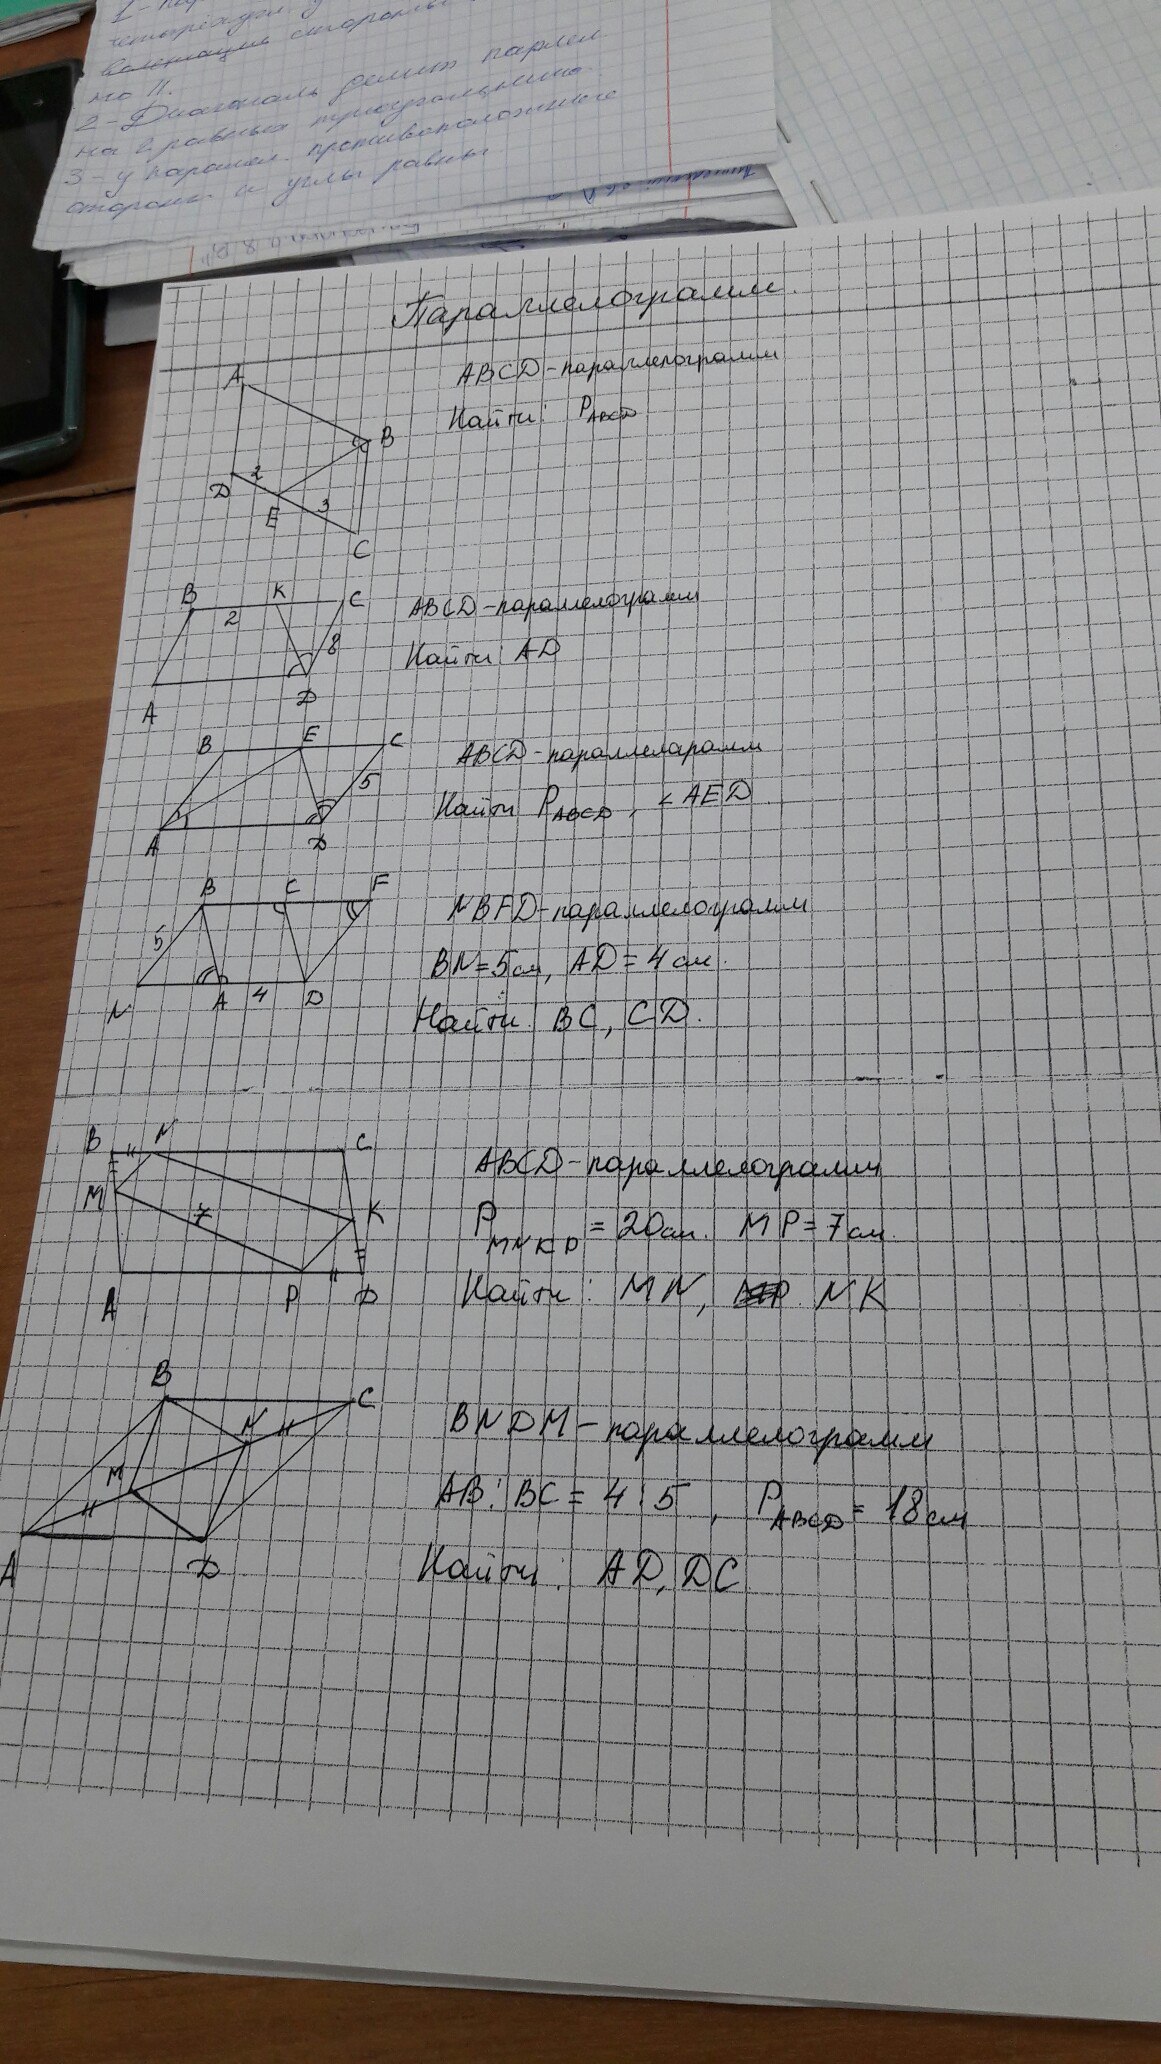 2 - Диагональ делит паралел.
на 2 равных треугольника
3 - у паралел. противоположные
стороны и углы равны
Параллелограмм.
A
B
D
2
E
3
C
ABCD - параллелограмм
Найти: P ABCD
B
K
C
2
8
A
D
ABCD - параллелограмм
Найти: AD
B
E
C
5
A
D
ABCD - параллеларамм
Найти P ABCD, ∠AED
B
C
F
5
N
A
4
D
NBFD - параллелограмм
BN = 5 см, AD = 4 см.
Найти: BC, CD.
B
N
C
M
7
K
A
P
D
ABCD - параллелограмм
P MNKP = 20 см. MP = 7 см.
Найти: MN, NK
B
C
N
M
A
D
BNDM - параллелограмм
AB : BC = 4 : 5, P ABCD = 18 см
Найти: AD, DC